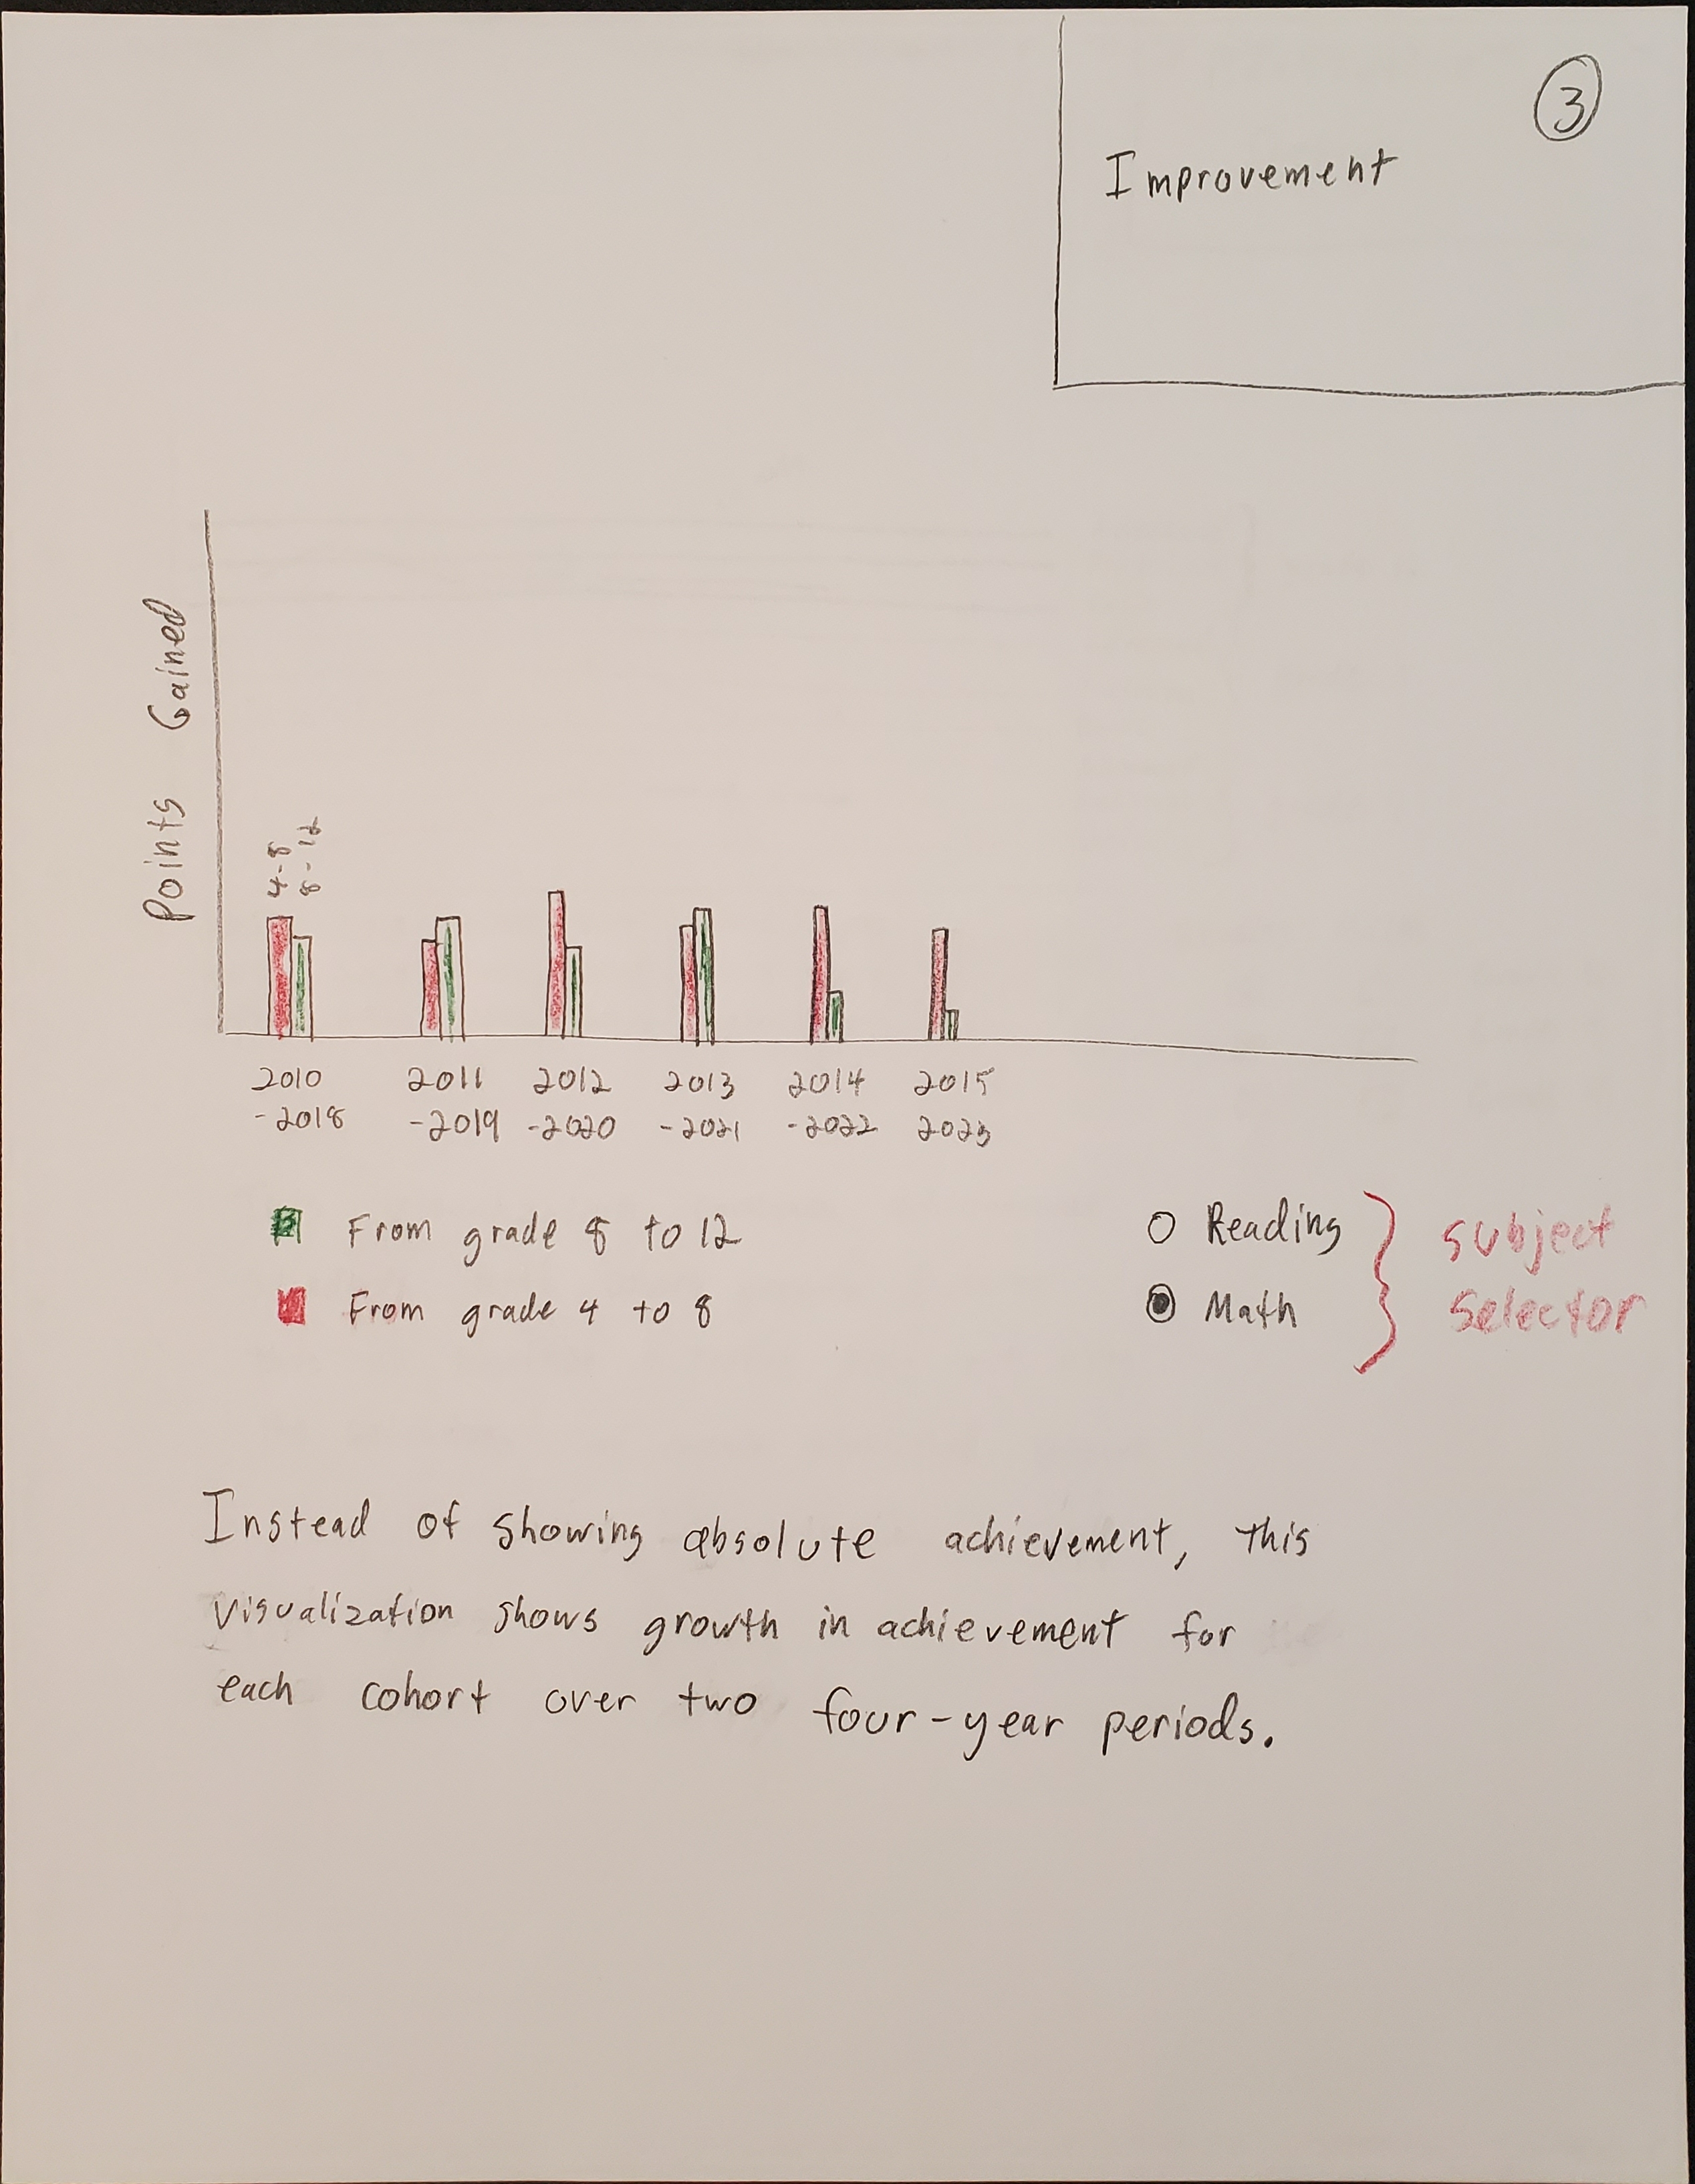 3
Improvement
Points Gained
4-8
8-12
2010
-2018
2011
-2019
2012
-2020
2013
-2021
2014
-2022
2015
2023
From grade 8 to 12
From grade 4 to 8
Reading
Math
subject
selector
Instead of showing absolute achievement, this
visualization shows growth in achievement for
each cohort over two four-year periods.